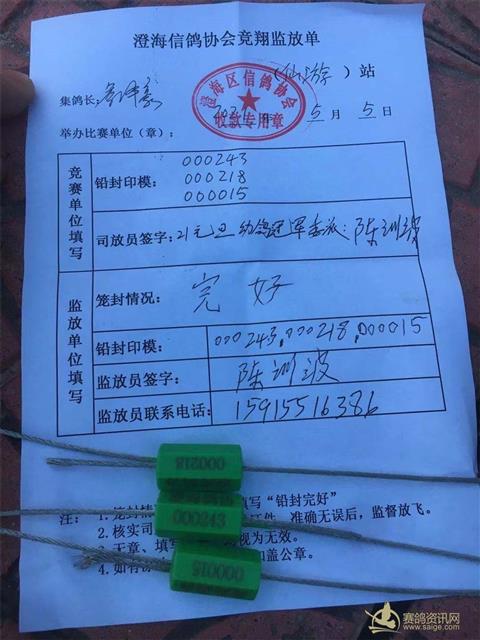 澄海信鸽协会竞翔监放单
(仙游)站
集鸽长:
澄海区信鸽协会
收款专用章
5月5日
举办比赛单位(章):
竞赛单位填写
铅封印模:
000243
000218
000015
司放员签字:21元旦幼鸽冠军委派:陈训波
监放单位填写
笼封情况:完好
铅封印模:000243,000218,000015
监放员签字:陈训波
监放员联系电话:15915516386
000218
000243
000015
注:
1. 笼封情 填写“铅封完好”
2. 核实司 证件,准确无误后,监督放飞。
3. 无章、填写 视为无效。
4. 如有 加盖公章。
赛鸽资讯网
www.saige.com